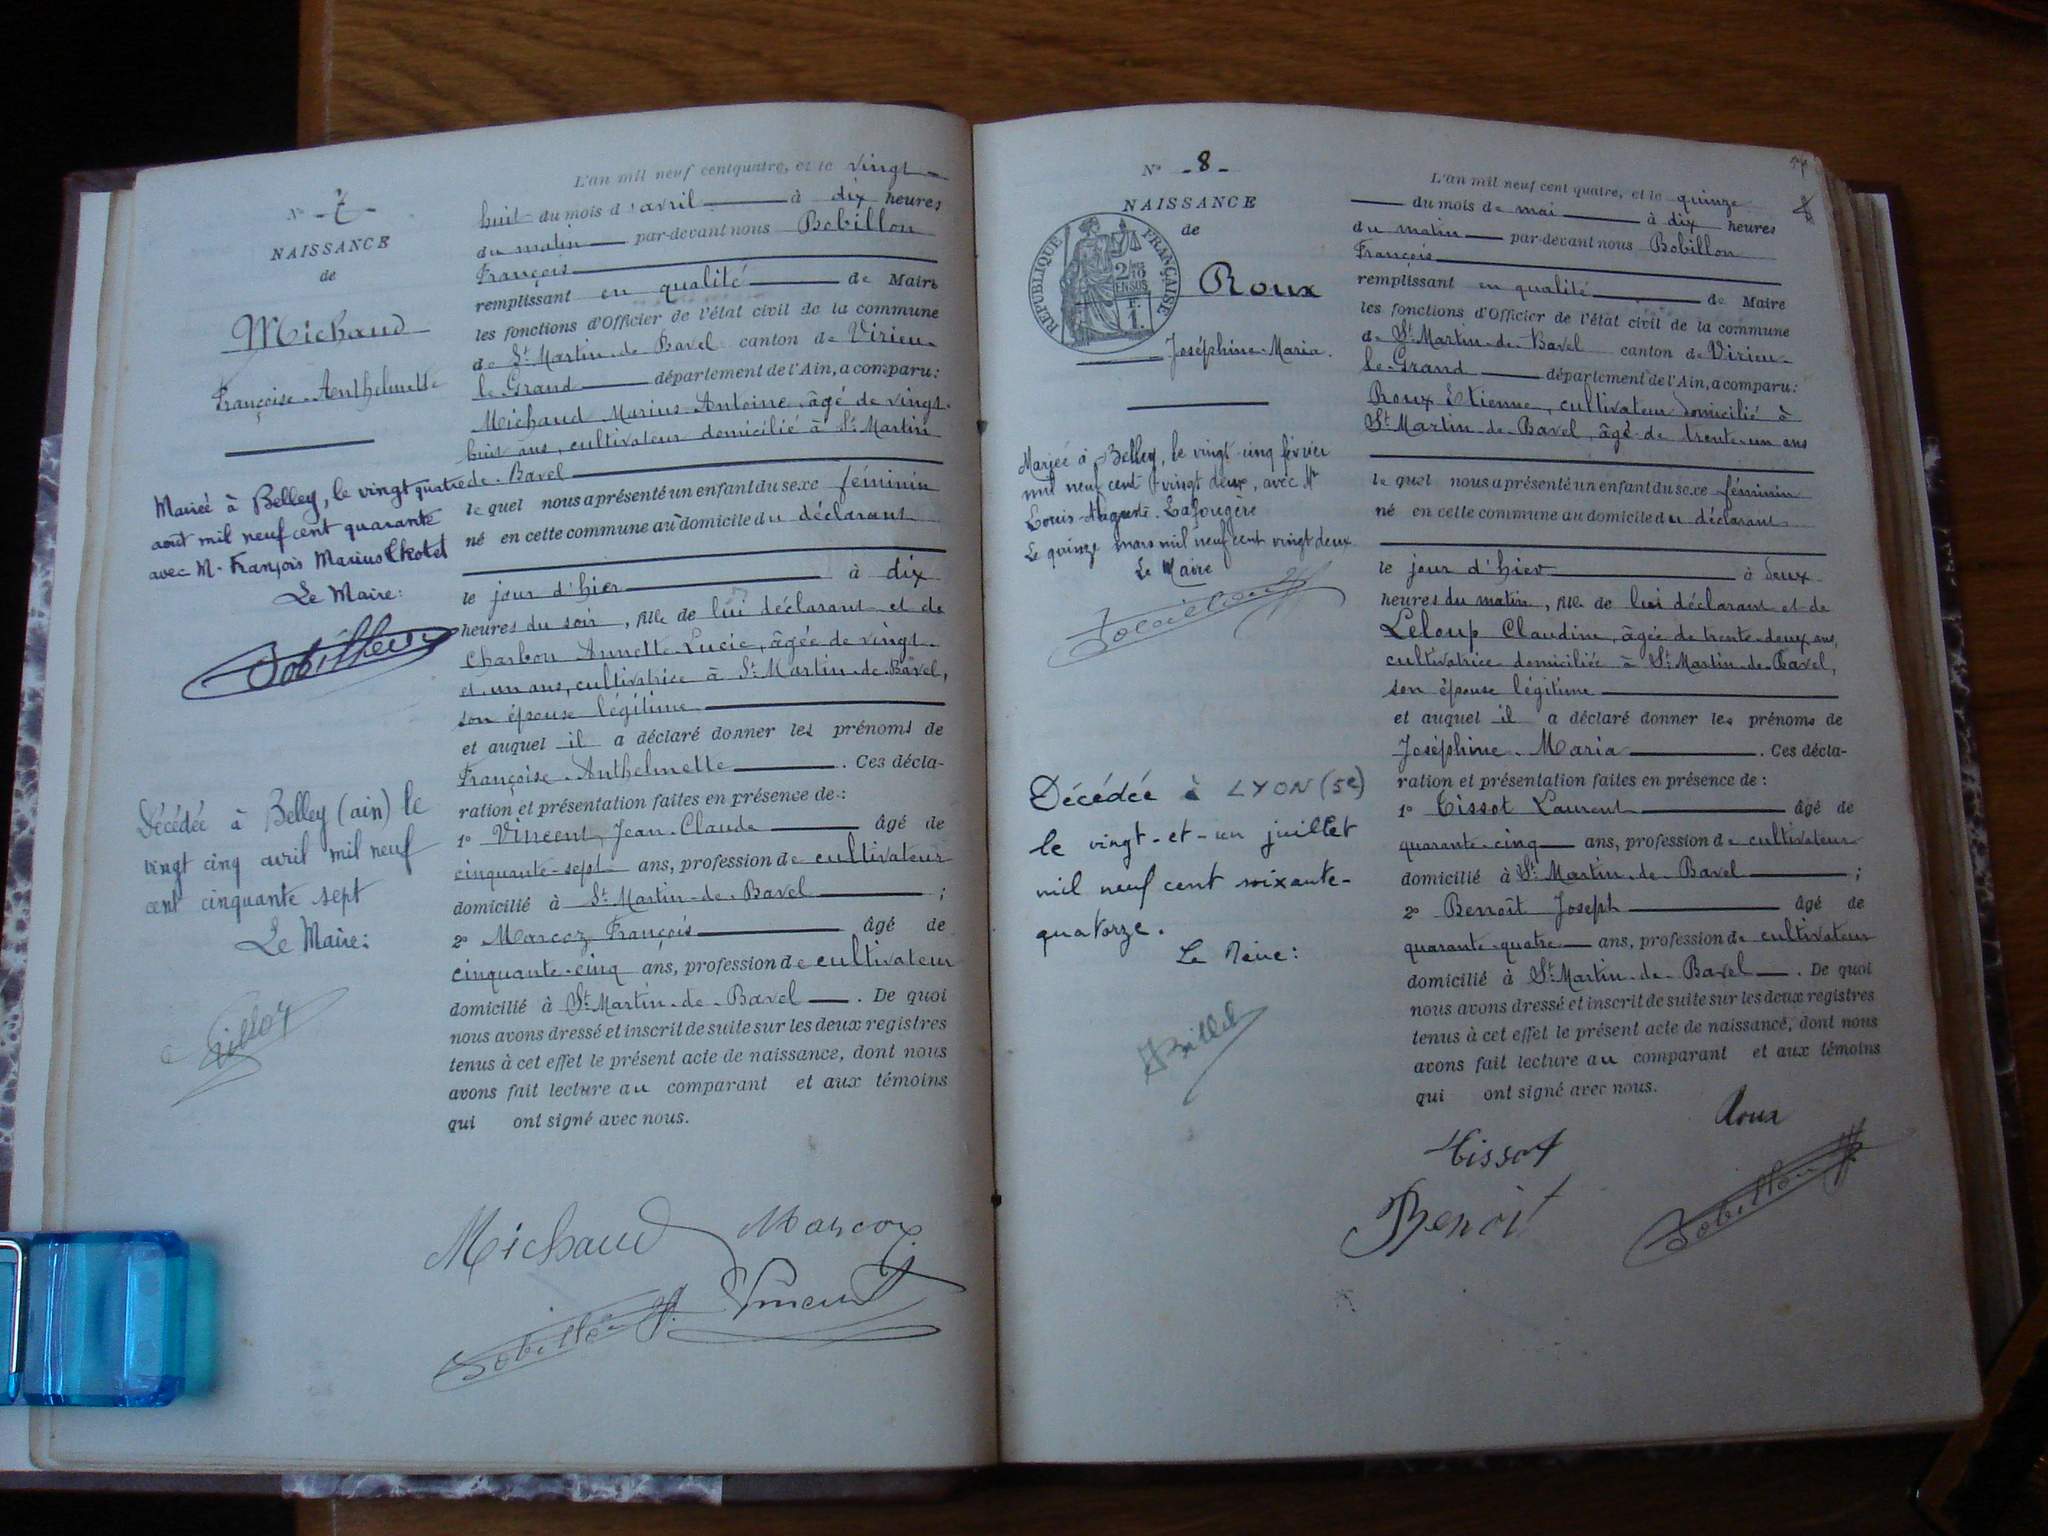 N° - 7 -
NAISSANCE
de
Michaud
Françoise-Anthelmette
Mariée à Belley, le vingt quatre
août mil neuf cent quarante
avec M. François Marius
Le Maire:
Décédée à Belley (ain) le
vingt cinq avril mil neuf
cent cinquante sept
Le Maire:
L'an mil neuf cent quatre, et le vingt
huit du mois d'avril à dix heures
du matin par-devant nous Bobillon
François
remplissant en qualité de Maire
les fonctions d'Officier de l'état civil de la commune
de St Martin-de-Bavel canton de Virieu-
le-Grand département de l'Ain, a comparu:
Michaud Marius Antoine, âgé de vingt-
huit ans, cultivateur domicilié à St Martin
de-Bavel
le quel nous a présenté un enfant du sexe féminin
né en cette commune au domicile du déclarant
le jour d'hier à dix
heures du soir, fille de lui déclarant et de
Charbon Annette-Lucie, âgée de vingt-
et-un ans, cultivatrice à St Martin-de-Bavel,
son épouse légitime
et auquel il a déclaré donner les prénoms de
Françoise-Anthelmette. Ces décla-
ration et présentation faites en présence de:
1° Vincent, Jean-Claude âgé de
cinquante-sept ans, profession de cultivateur
domicilié à St Martin-de-Bavel ;
2° Marcoz François âgé de
cinquante-cinq ans, profession de cultivateur
domicilié à St Martin-de-Bavel. De quoi
nous avons dressé et inscrit de suite sur les deux registres
tenus à cet effet le présent acte de naissance, dont nous
avons fait lecture au comparant et aux témoins
qui ont signé avec nous.
Michaud Marcoz
Bobillon F. Vincent
N° - 8 -
NAISSANCE
de
RÉPUBLIQUE FRANÇAISE
2 10 EN SUS
F. 1.
Roux
Joséphine-Maria.
Mariée à Belley, le vingt-cinq février
mil neuf cent vingt deux, avec Mr
Louis-Auguste Lafougère
Le quinze mars mil neuf cent vingt deux
Le Maire
Décédée à LYON (5e)
le vingt-et-un juillet
mil neuf cent soixante-
quatorze.
Le Maire:
L'an mil neuf cent quatre, et le quinze
du mois de mai à dix heures
du matin par-devant nous Bobillon
François
remplissant en qualité de Maire
les fonctions d'Officier de l'état civil de la commune
de St Martin-de-Bavel canton de Virieu-
le-Grand département de l'Ain, a comparu:
Roux Etienne, cultivateur domicilié à
St Martin-de-Bavel, âgé de trente-un ans
le quel nous a présenté un enfant du sexe féminin
né en cette commune au domicile du déclarant
le jour d'hier à deux
heures du matin, fille de lui déclarant et de
Leloup Claudine, âgée de trente-deux ans,
cultivatrice domiciliée à St Martin-de-Bavel,
son épouse légitime
et auquel il a déclaré donner les prénoms de
Joséphine-Maria. Ces décla-
ration et présentation faites en présence de:
1° Tissot Laurent âgé de
quarante-cinq ans, profession de cultivateur
domicilié à St Martin-de-Bavel ;
2° Benoît Joseph âgé de
quarante-quatre ans, profession de cultivateur
domicilié à St Martin-de-Bavel. De quoi
nous avons dressé et inscrit de suite sur les deux registres
tenus à cet effet le présent acte de naissance, dont nous
avons fait lecture au comparant et aux témoins
qui ont signé avec nous.
Roux
Tissot
Benoit Bobillon F.